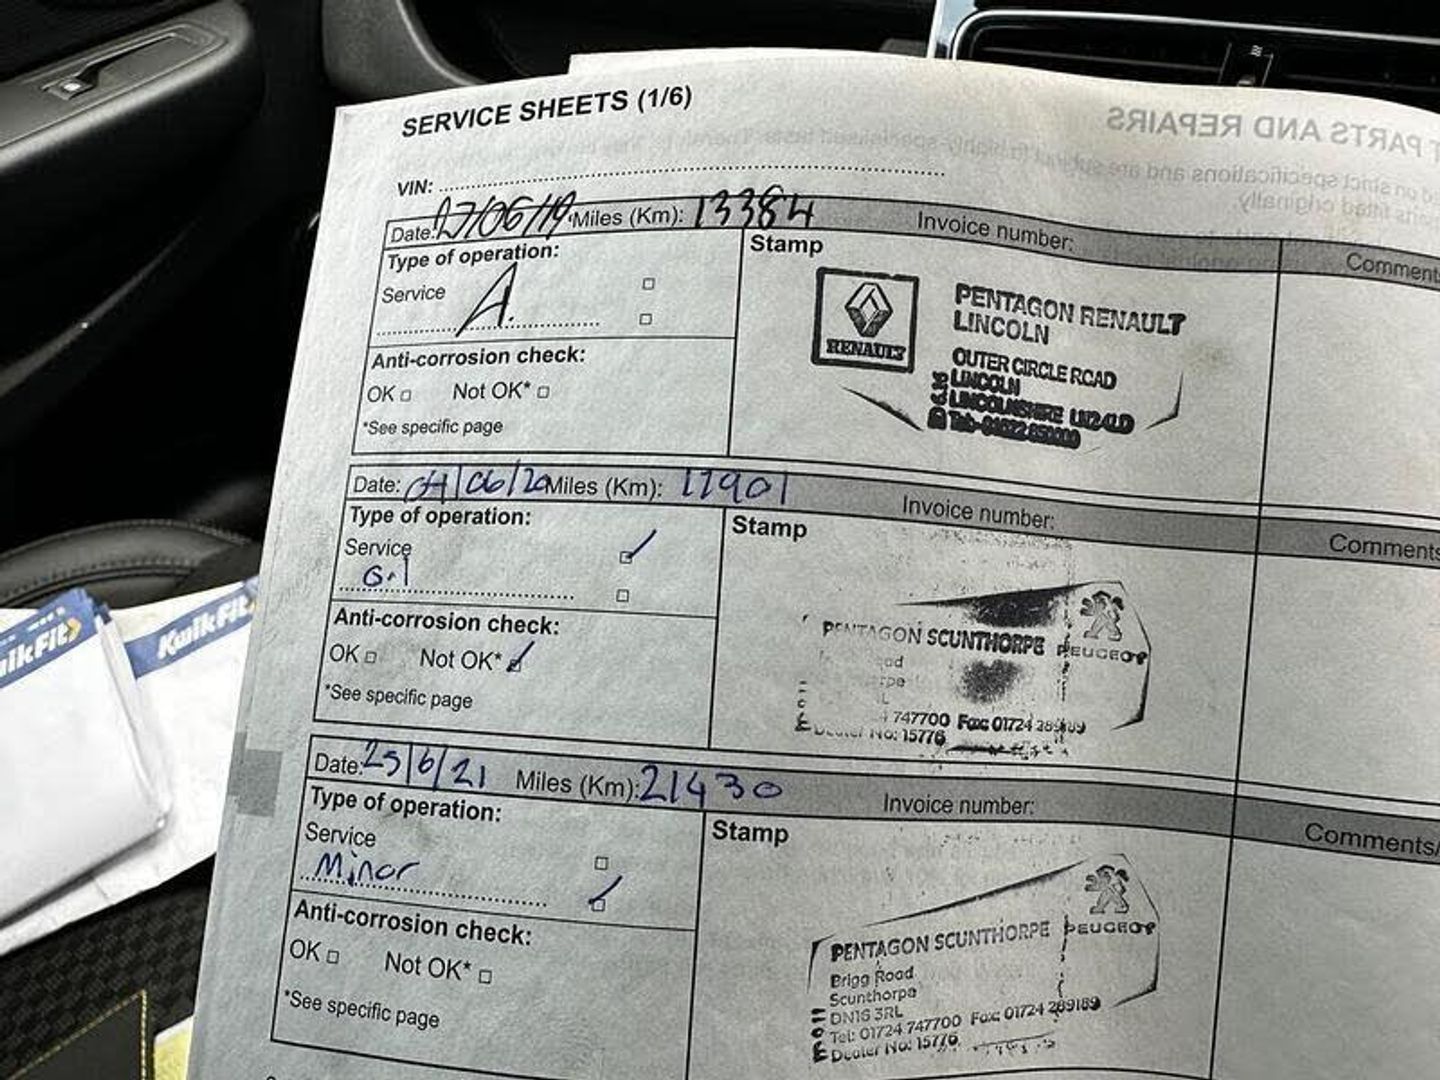 SERVICE SHEETS (1/6)
T PARTS AND REPAIRS
VIN:
Date: 27/06/19 Miles (Km): 13384 Invoice number: Comments
Type of operation:
Service
A.
Anti-corrosion check:
OK Not OK*
*See specific page
Stamp
RENAULT
PENTAGON RENAULT
LINCOLN
OUTER CIRCLE ROAD
LINCOLN
LINCOLNSHIRE
Date: 04/06/20 Miles (Km): 17901 Invoice number: Comments
Type of operation:
Service
Oil
Anti-corrosion check:
OK Not OK*
*See specific page
Stamp
PENTAGON SCUNTHORPE PEUGEOT
747700 Fax: 01724 289189
Dealer No: 15776
Date: 25/6/21 Miles (Km): 21430 Invoice number: Comments/
Type of operation:
Service
Minor
Anti-corrosion check:
OK Not OK*
*See specific page
Stamp
PENTAGON SCUNTHORPE PEUGEOT
Brigg Road
Scunthorpe
DN16 3RL
Tel: 01724 747700 Fax: 01724 289189
Dealer No: 15776
KwikFit
KwikFit